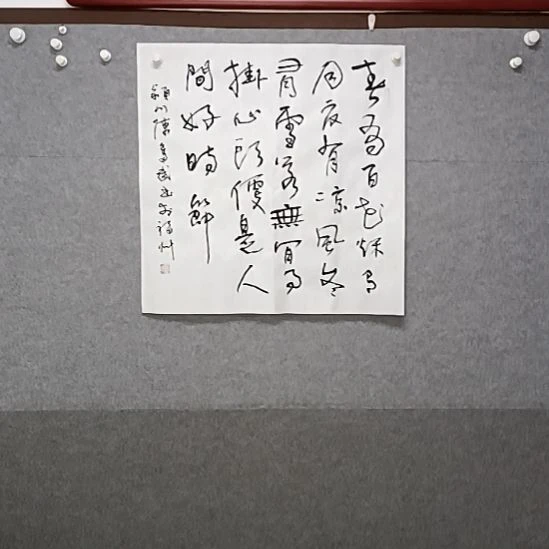 春有百花秋有
月夏有涼風冬
有雪若無閒事
掛心頭便是人
間好時節
潁川陳書於福州